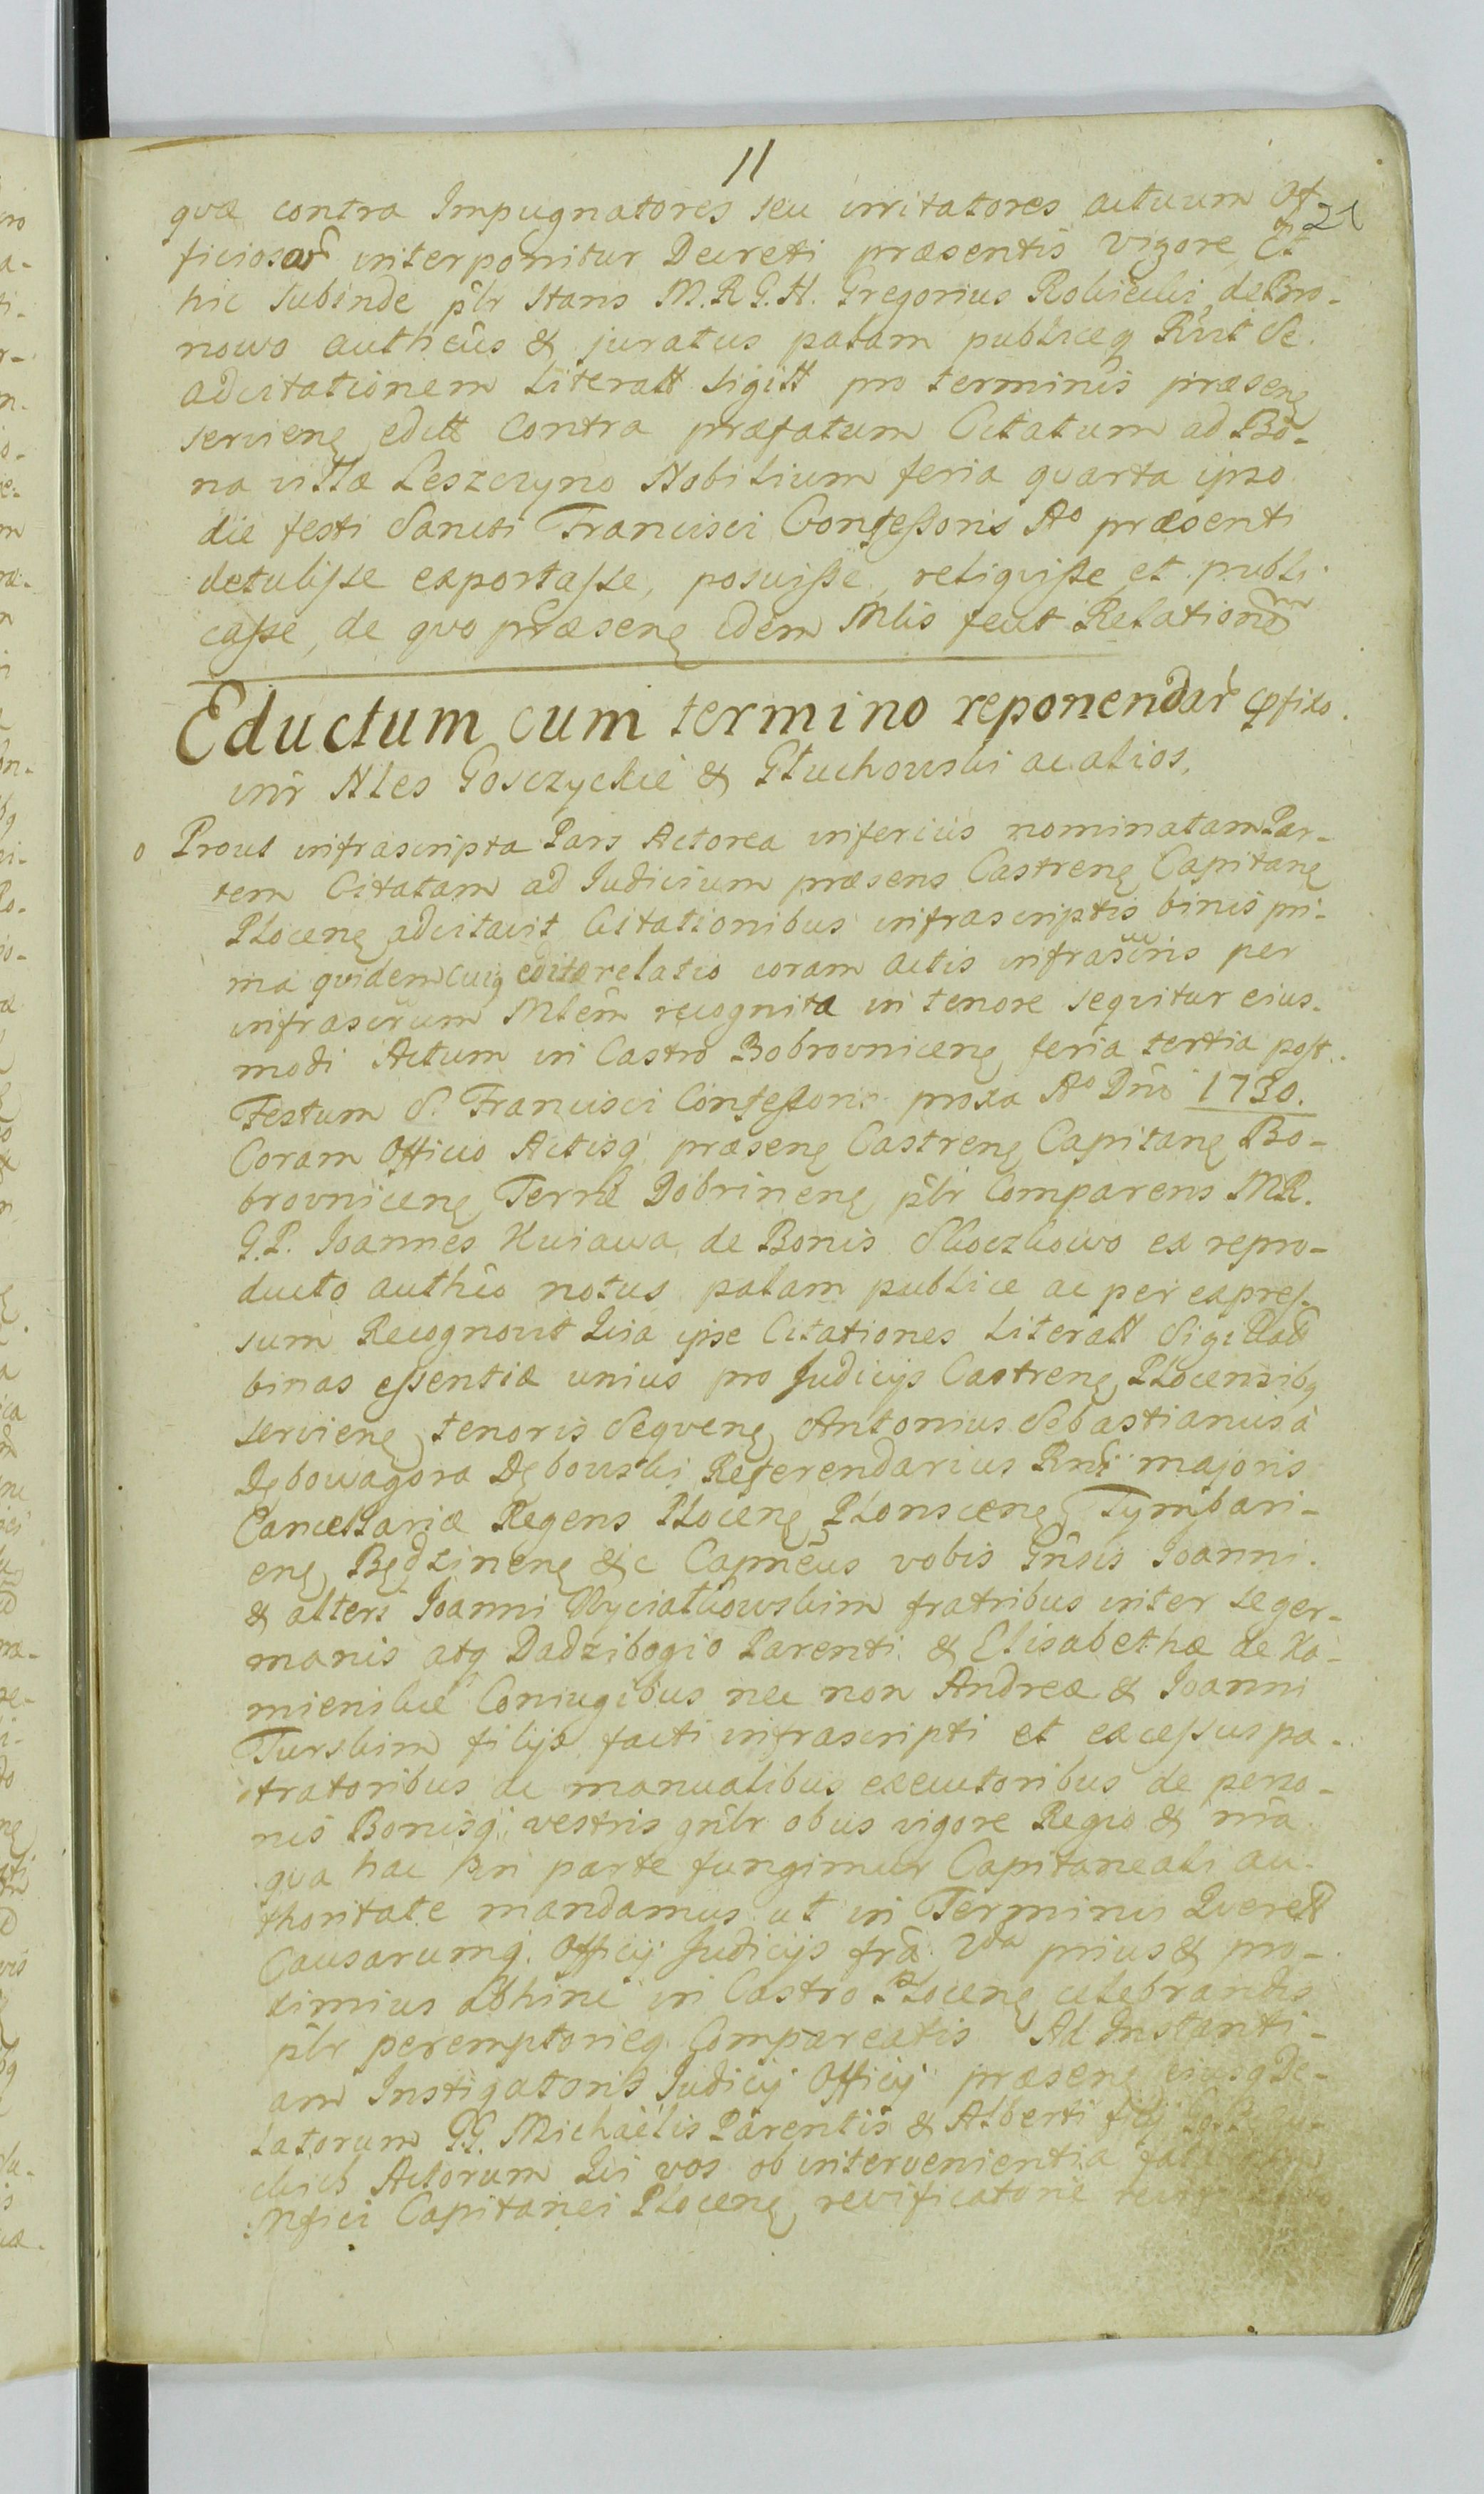 11
21
quæ contra Impugnatores seu irritatores actuum Of
ficiosor̃ interponitur Decreti præsentis vigore, Et
hic Subinde p̃lr Stans M.R.G.N. Gregorius Robiecki de Bro-
nowo autheũs & juratus palam publiceq Rivit Se
adcitationem Literatt Sigitt pro terminis præsenɇ
servienɇ editt Contra præfatum Citatum ad Bo-
na villæ Leszczyno Nobilium feria quarta ipso
die festi Sancti Francisci Confessoris A° præsenti
detulisse exportasse, posuisse, reliquisse et publi-
casse, de quo præsenɇ idem Mlis fecit Relationem
Eductum cum termino reponendar̃ ꝓfixo.
intr̃ Nles Gosczyckie & Głuchowski ac alios.
o Prout infrascripta Pars Actorea inferius nominatam Par-
tem Citatam ad Judicium præsens Castrenɇ Capitanɇ
Plocenɇ adcitavit Citationibus infrascriptis binis pri-
ma quidem cuiq editæ relatio coram actis infrascr̃is per
infrascr̃um Mlẽm recognita in tenore sequitur eius-
modi Actum in Castro Bobrovnicenɇ feria tertia post
Festum S. Francisci Confessoris proxa A° Dñi 1730.
Coram Officio Actisq præsenɇ Castrenɇ Capitanɇ Bo-
brovnicenɇ Terræ Dobrinenɇ p̃lr Comparens M.R.
G.P. Joannes Kuiawa de Bonis Skoczkowo ex repro-
ducto authĩo notus palam publice ac per expres-
sum Recognovit Quia ipse Citationes Literatt Sigillatt
binas essentiæ unius pro Judicijs Castrenɇ Plocensibq
servienɇ tenoris Sequenɇ Antonius Sebastianus à
Dębowagora Dębowski Referendarius Rñi majoris
Cancellariæ Regens Plocenɇ Plonscenɇ Tymbari-
enɇ Będzinenɇ &c Capnẽus vobis Gñsis Joanni
& alteri Joanni Myciałkowskim fratribus inter se ger-
manis atq Dadzibogio Parenti & Elisabethæ de Ka-
mienskie Coniugibus nec non Andreæ & Joanni
Turskim filijs facti infrascripti et excessus pa-
tratoribus ac manualibus executoribus de perso-
nis Bonisq vestris gñlr obus vigore Regio & nr̃a
qua hac in parte fungimur Capitaneali au-
thoritate mandamus ut in Terminis Querell
Causarumq Officij Judicijs fr̃a 2da prius & pro-
ximius abhinc in Castro Plocenɇ celebrandis
p̃lr peremptorieq Compareatis Ad Instanti-
am Instigatoris Judicij Officij præsenɇ eiusq De-
latorum GG. Michaelis Parentis & Alberti filij
ckich Actorum Qui vos ob intervenientia
Mfici Capitanei Plocenɇ revificatorie